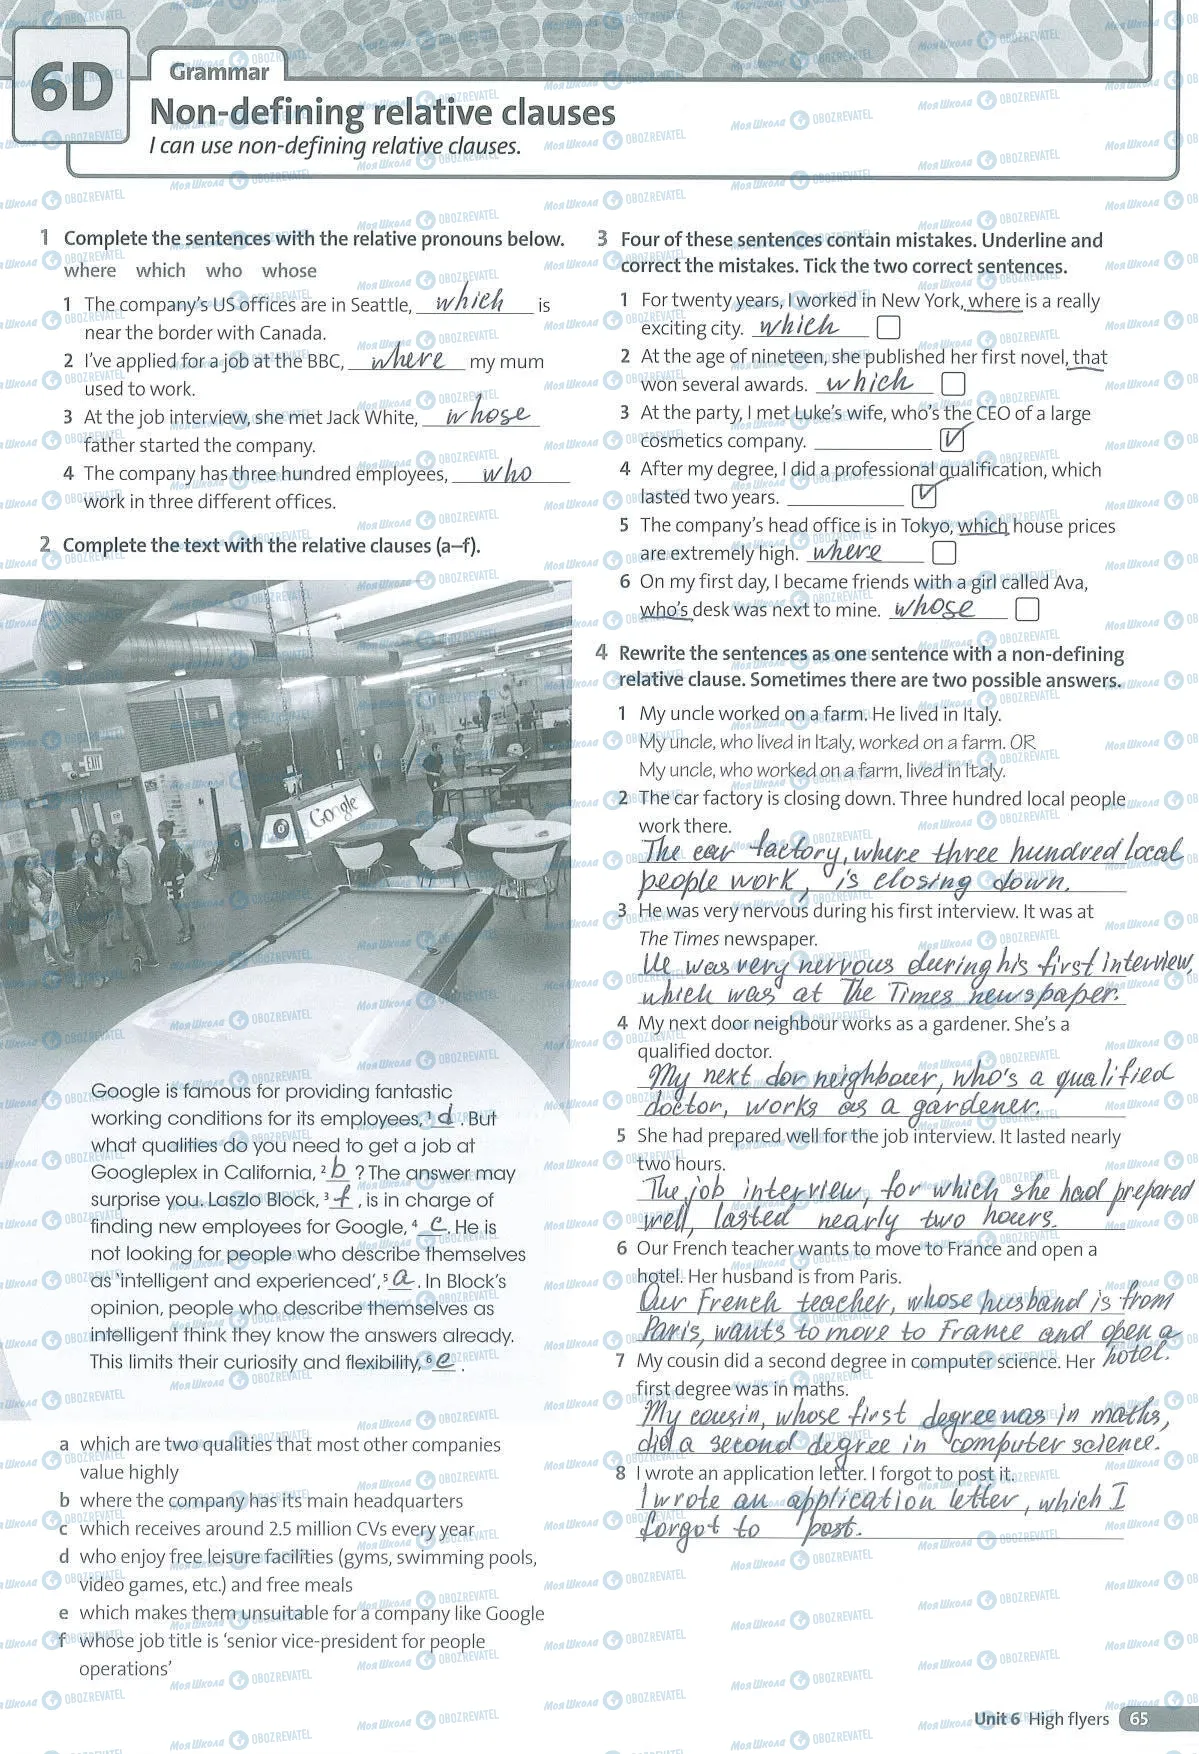 6D
Grammar
Non-defining relative clauses
I can use non-defining relative clauses.
1 Complete the sentences with the relative pronouns below.
where which who whose
1 The company's US offices are in Seattle, which is
near the border with Canada.
2 I've applied for a job at the BBC, where my mum
used to work.
3 At the job interview, she met Jack White, whose
father started the company.
4 The company has three hundred employees, who
work in three different offices.
2 Complete the text with the relative clauses (a–f).
EXIT
Google
Google is famous for providing fantastic
working conditions for its employees, 1 d . But
what qualities do you need to get a job at
Googleplex in California, 2 b ? The answer may
surprise you. Laszlo Block, 3 f , is in charge of
finding new employees for Google, 4 c . He is
not looking for people who describe themselves
as 'intelligent and experienced', 5 a . In Block's
opinion, people who describe themselves as
intelligent think they know the answers already.
This limits their curiosity and flexibility, 6 e .
a which are two qualities that most other companies
value highly
b where the company has its main headquarters
c which receives around 2.5 million CVs every year
d who enjoy free leisure facilities (gyms, swimming pools,
video games, etc.) and free meals
e which makes them unsuitable for a company like Google
f whose job title is 'senior vice-president for people
operations'
3 Four of these sentences contain mistakes. Underline and
correct the mistakes. Tick the two correct sentences.
1 For twenty years, I worked in New York, where is a really
exciting city. which
2 At the age of nineteen, she published her first novel, that
won several awards. which
3 At the party, I met Luke's wife, who's the CEO of a large
cosmetics company. ✓
4 After my degree, I did a professional qualification, which
lasted two years. ✓
5 The company's head office is in Tokyo, which house prices
are extremely high. where
6 On my first day, I became friends with a girl called Ava,
who's desk was next to mine. whose
4 Rewrite the sentences as one sentence with a non-defining
relative clause. Sometimes there are two possible answers.
1 My uncle worked on a farm. He lived in Italy.
My uncle, who lived in Italy, worked on a farm. OR
My uncle, who worked on a farm, lived in Italy.
2 The car factory is closing down. Three hundred local people
work there.
The car factory, where three hundred local
people work, is closing down.
3 He was very nervous during his first interview. It was at
The Times newspaper.
He was very nervous during his first interview,
which was at The Times newspaper.
4 My next door neighbour works as a gardener. She's a
qualified doctor.
My next dor neighbour, who's a qualified
doctor, works as a gardener.
5 She had prepared well for the job interview. It lasted nearly
two hours.
The job interview, for which she had prepared
well, lasted nearly two hours.
6 Our French teacher wants to move to France and open a
hotel. Her husband is from Paris.
Our French teacher, whose husband is from
Paris, wants to move to France and open a
hotel.
7 My cousin did a second degree in computer science. Her
first degree was in maths.
My cousin, whose first degree was in maths,
did a second degree in computer science.
8 I wrote an application letter. I forgot to post it.
I wrote an application letter, which I
forgot to post.
Unit 6 High flyers 65
Моя Школа OBOZREVATEL